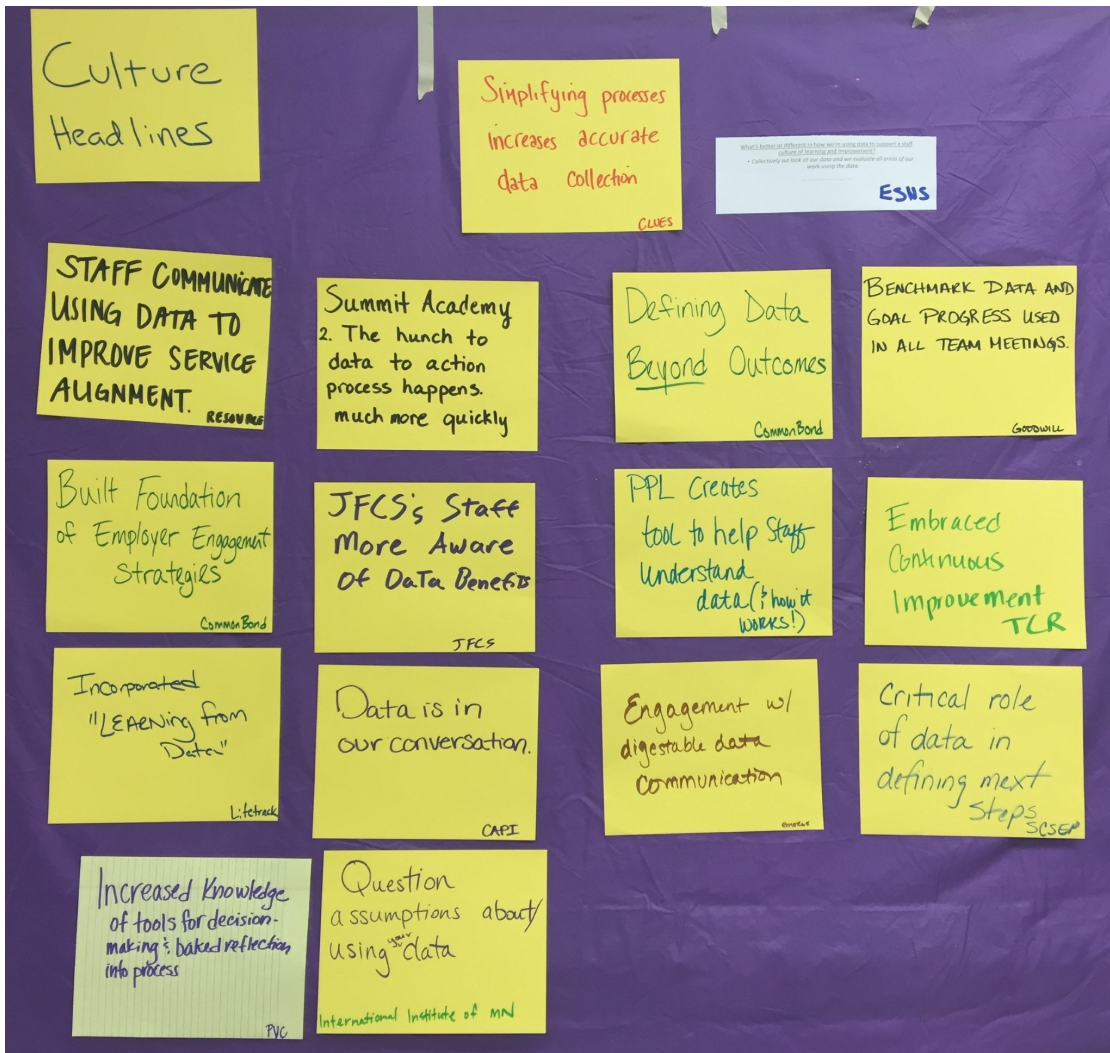 Culture
Headlines
Simplifying processes
increases accurate
data collection
CLUES
What's better or different in how we're using data to support a staff
culture of learning and improvement?
• Collectively we look at our data and we evaluate all areas of our
work using the data.
ESNS
STAFF COMMUNICATE
USING DATA TO
IMPROVE SERVICE
ALIGNMENT.
RESOURCE
Summit Academy
2. The hunch to
data to action
process happens.
much more quickly
Defining Data
Beyond Outcomes
CommonBond
BENCHMARK DATA AND
GOAL PROGRESS USED
IN ALL TEAM MEETINGS.
GOODWILL
Built Foundation
of Employer Engagement
Strategies
CommonBond
JFCS's Staff
More Aware
Of Data Benefits
JFCS
PPL Creates
tool to help Staff
Understand
data (& how it
WORKS!)
Embraced
Continuous
Improvement
TCR
Incorporated
"LEARNING from
Data"
Lifetrack
Data is in
our conversation.
CAPI
Engagement w/
digestable data
communication
Critical role
of data in
defining next
Steps
SCSEP
Increased Knowledge
of tools for decision-
making & baked reflection
into process
PVC
Question
assumptions about/
using your data
International Institute of MN